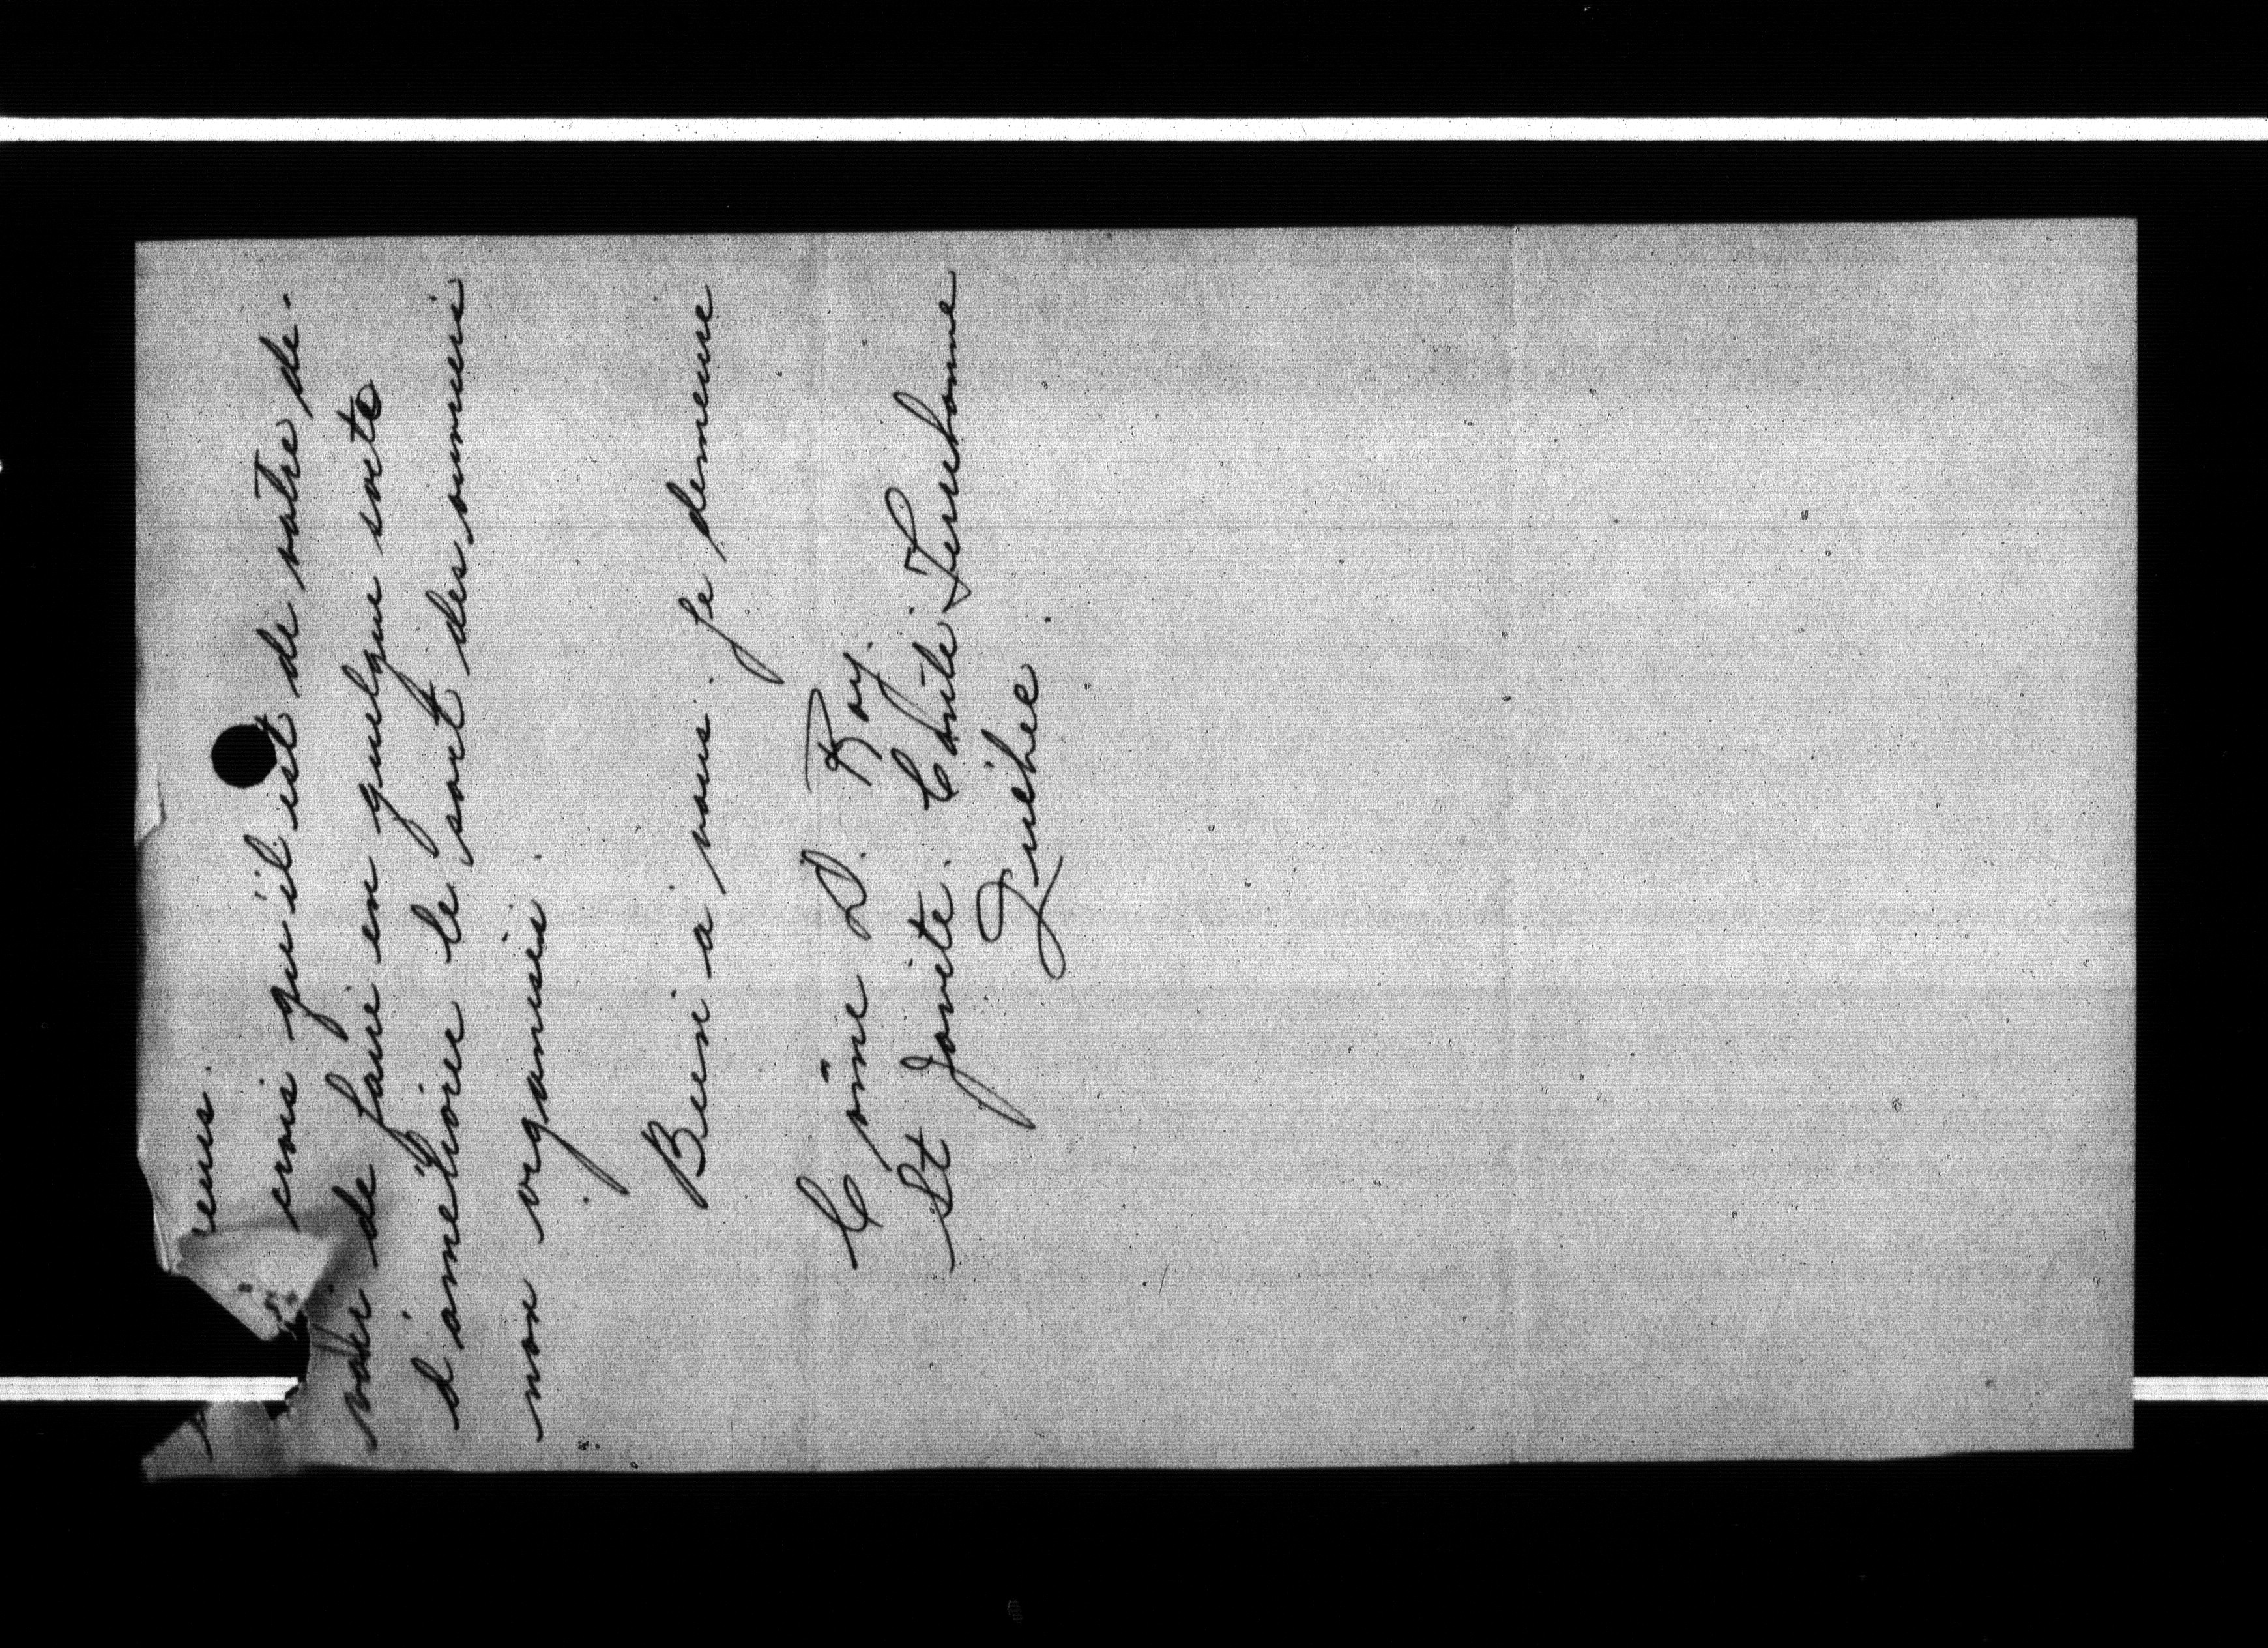 crois qu'il est de votre de-
voir de faire en quelque sorte
d'ameliorer le sort des ouvriers
non organisés.
Bien a vous. Je demeure
Côme D. Roy.
St Jovite. Cté Terrebonne
Quebec.